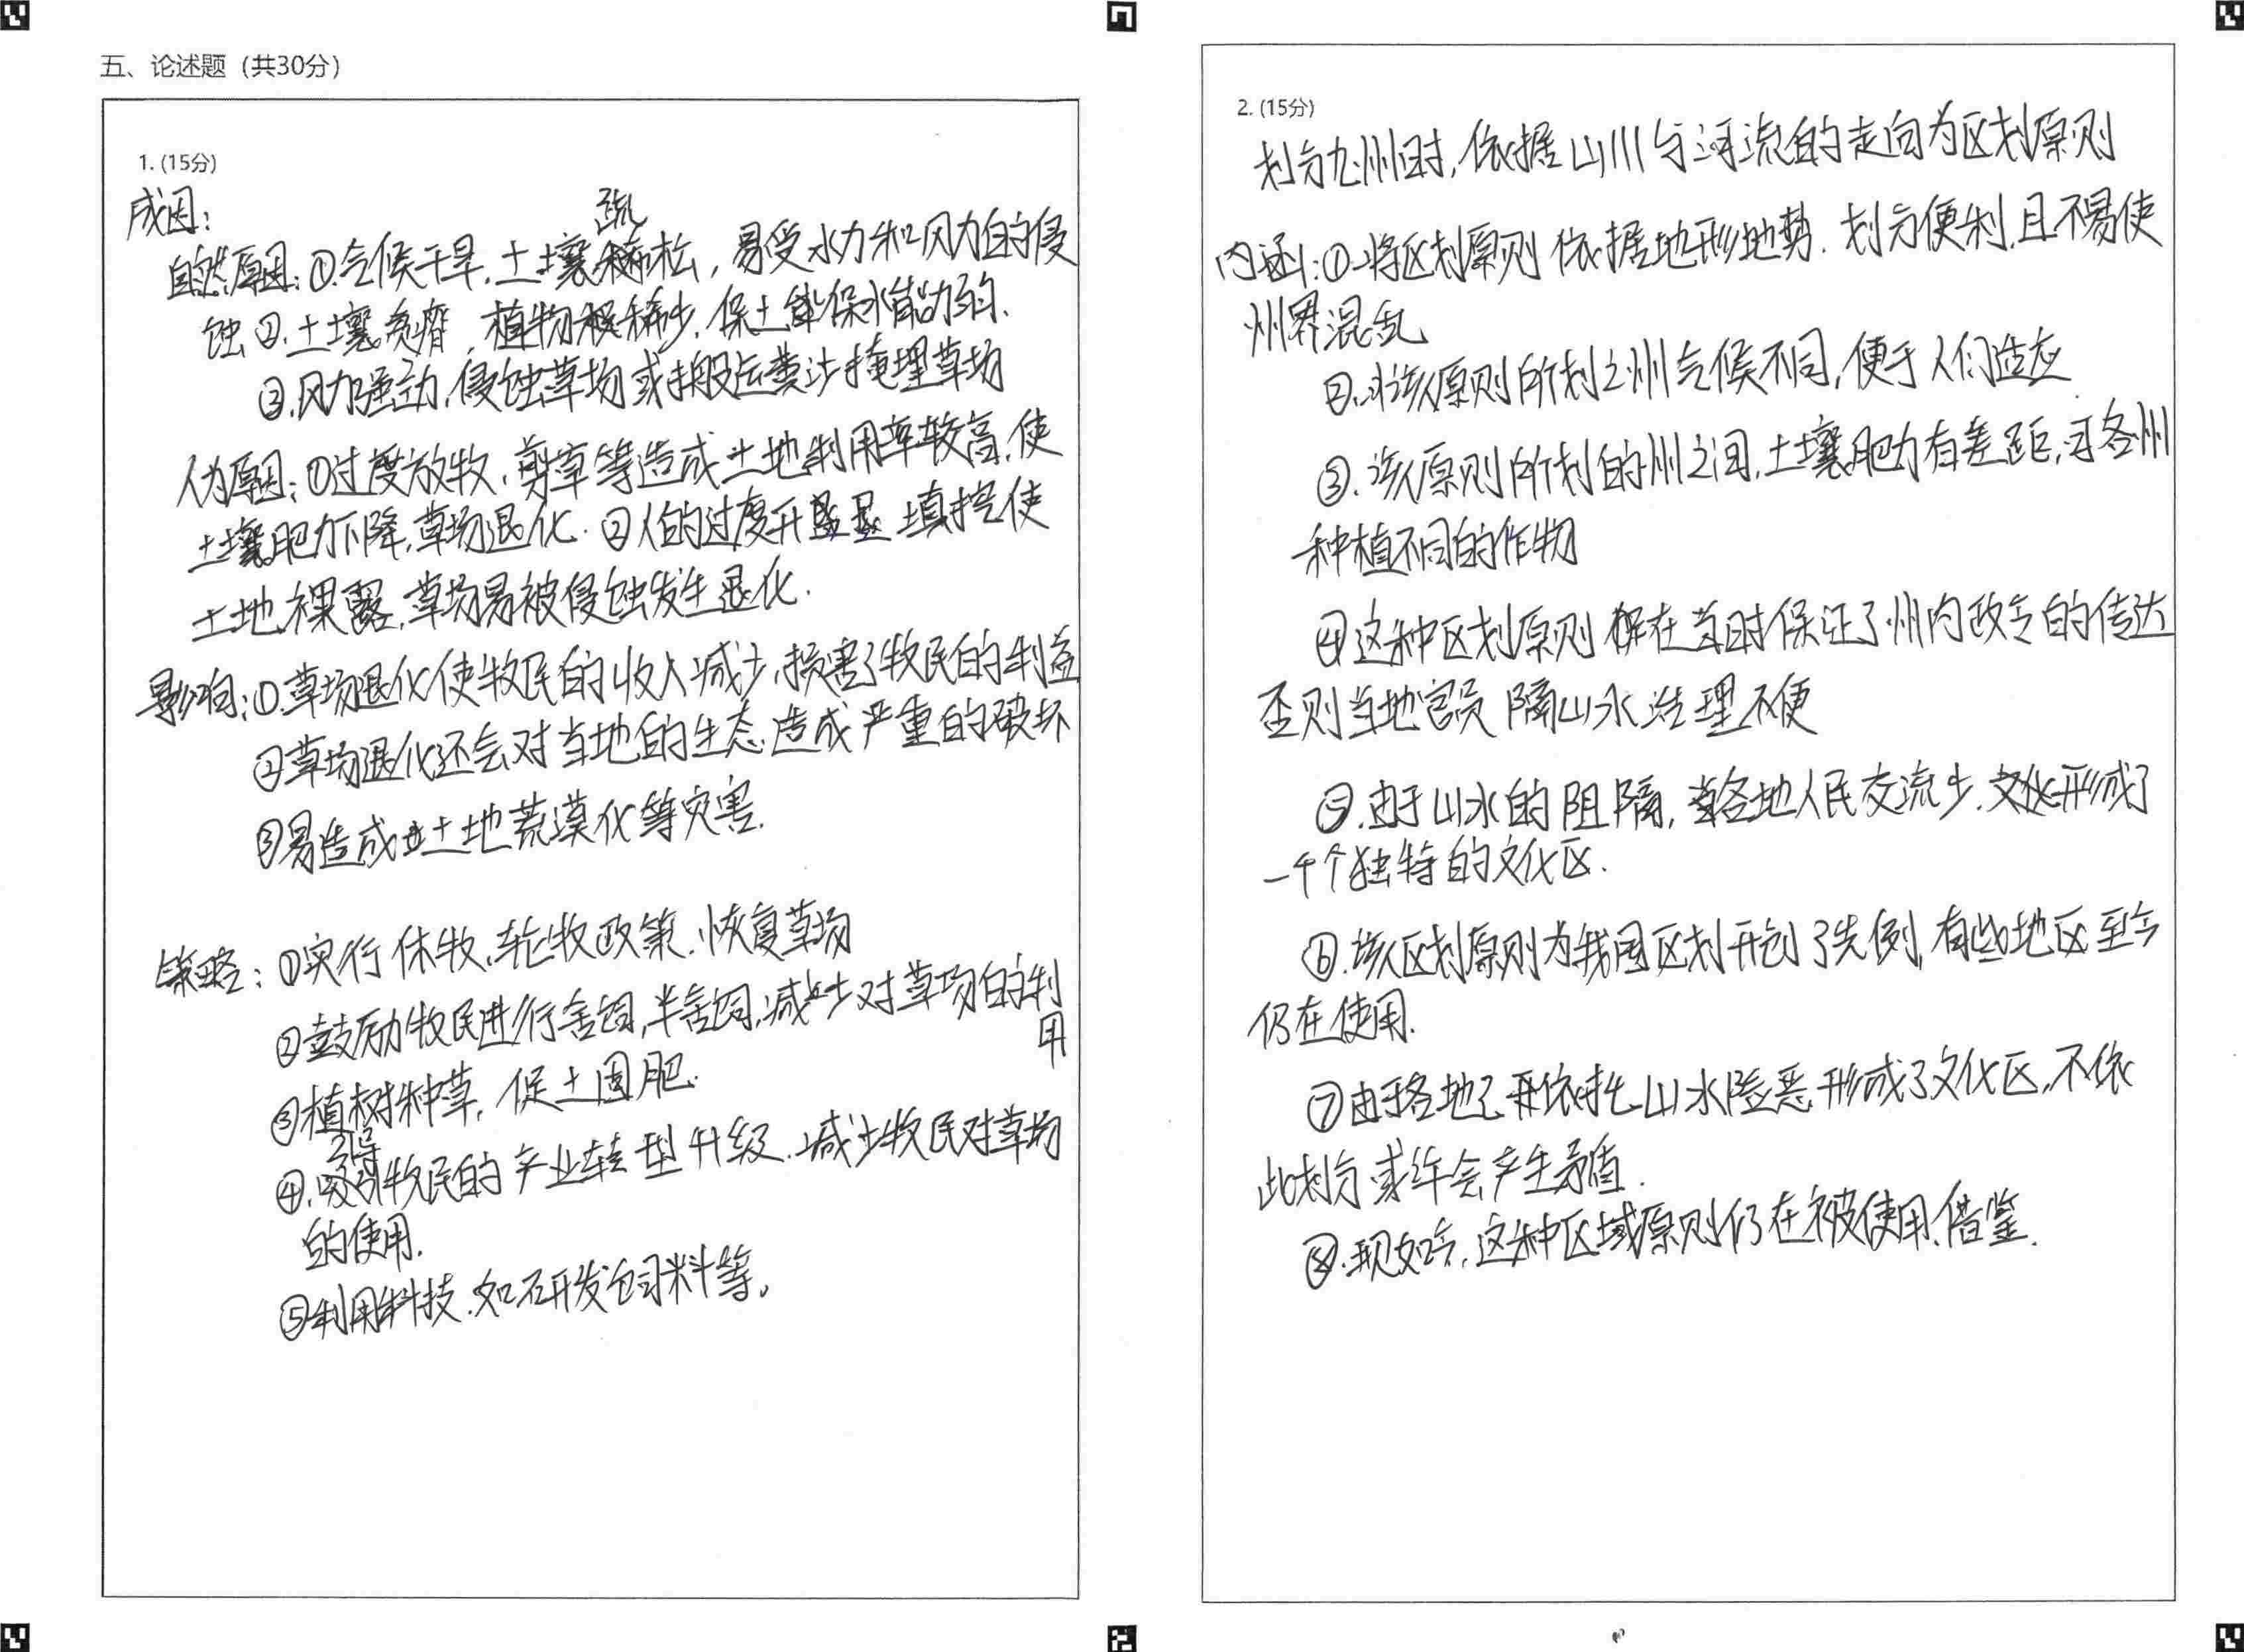 五、论述题（共30分）
1. (15分)
成因：
疏
自然原因：①.气候干旱，土壤松，易受水力和风力的侵
蚀②.土壤贫瘠，植物稀少，保土保水能力弱.
③.风力强劲，侵蚀草场或搬运黄沙掩埋草场
人为原因：①过度放牧，剪草等造成土地利用率较高，使
土壤肥力下降，草场退化.②人的过度开垦填挖使
土地裸露，草场易被侵蚀发生退化.
影响：①.草场退化使牧民的收入减少，损害了牧民的利益
②草场退化还会对当地的生态造成严重的破坏
③易造成土地荒漠化等灾害.
策略：①实行休牧、轮牧政策.恢复草场
②鼓励牧民进行舍饲，半舍饲，减少对草场的利
用
③植树种草，保土固肥.
引导
④.牧民的产业转型升级.减少牧民对草场
的使用.
⑤利用科技.如研发饲料等。
2. (15分)
划分九州时，依据山川与河流的走向为区划原则
内涵：①将区划原则依据地形地势.划分便利，且不易使
州界混乱
②.该原则所划之州气候不同，便于人们适应.
③.该原则所划的州之间，土壤肥力有差距，可各州
种植不同的作物
④这种区划原则在当时保证了州内政令的传达
否则当地官员隔山水治理不便
⑤.由于山水的阻隔，各地人民交流少.文化形成了
一个个独特的文化区.
⑥.该区划原则为我国区划开创了先例，有些地区至今
仍在使用.
⑦由于各地已依托山水险恶形成了文化区，不依
此划分或许会产生矛盾.
⑧.现如今，这种区域原则仍在被使用、借鉴.